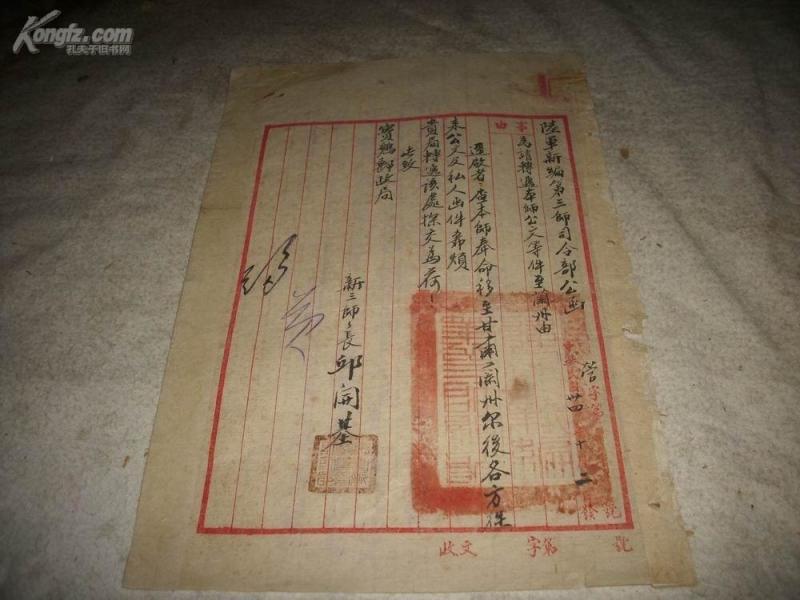 Kongfz.com
孔夫子旧书网
陸軍新編第三師司令部公函
事由
為請轉遞本師公文等件至蘭州由
字第
號
營
卅四 十 二
發
逕啟者：查本師奉命移至甘肅蘭州尔後各方往
來公文及私人函件希煩
貴局轉遞該處探交為荷！
此致
寶鷄郵政局
新三師師長 邱開基
收文 字第 號